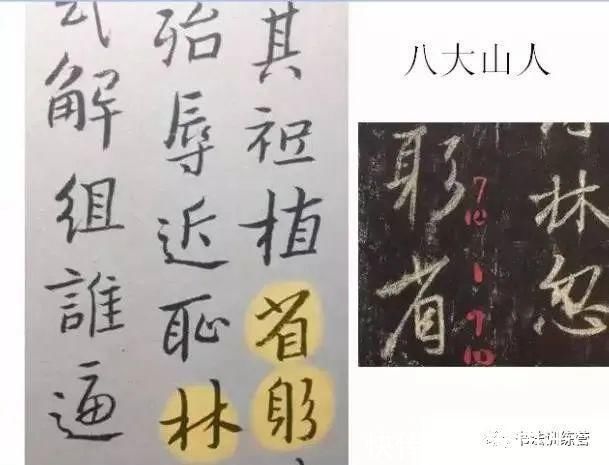 八大山人
其祗植省躬
殆辱近耻林
解組誰逼
林忽
躬省
书法训练营